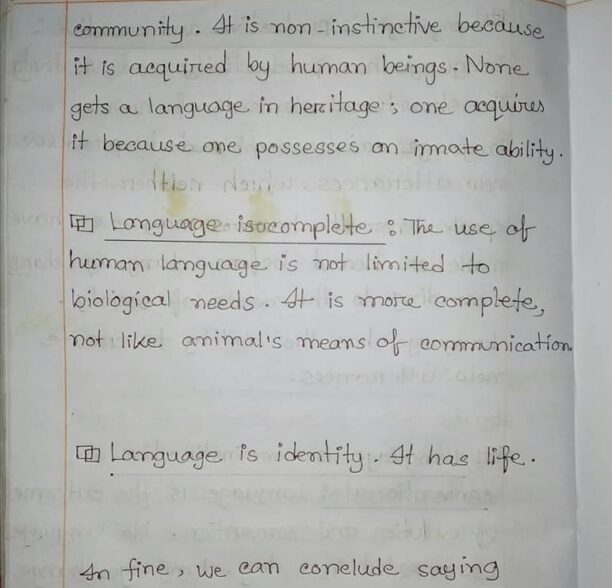 community. It is non-instinctive because
it is acquired by human beings. None
gets a language in heritage; one acquires
it because one possesses an innate ability.
Language is complete : The use of
human language is not limited to
biological needs. It is more complete,
not like animal's means of communication
Language is identity. It has life.
In fine, we can conclude saying